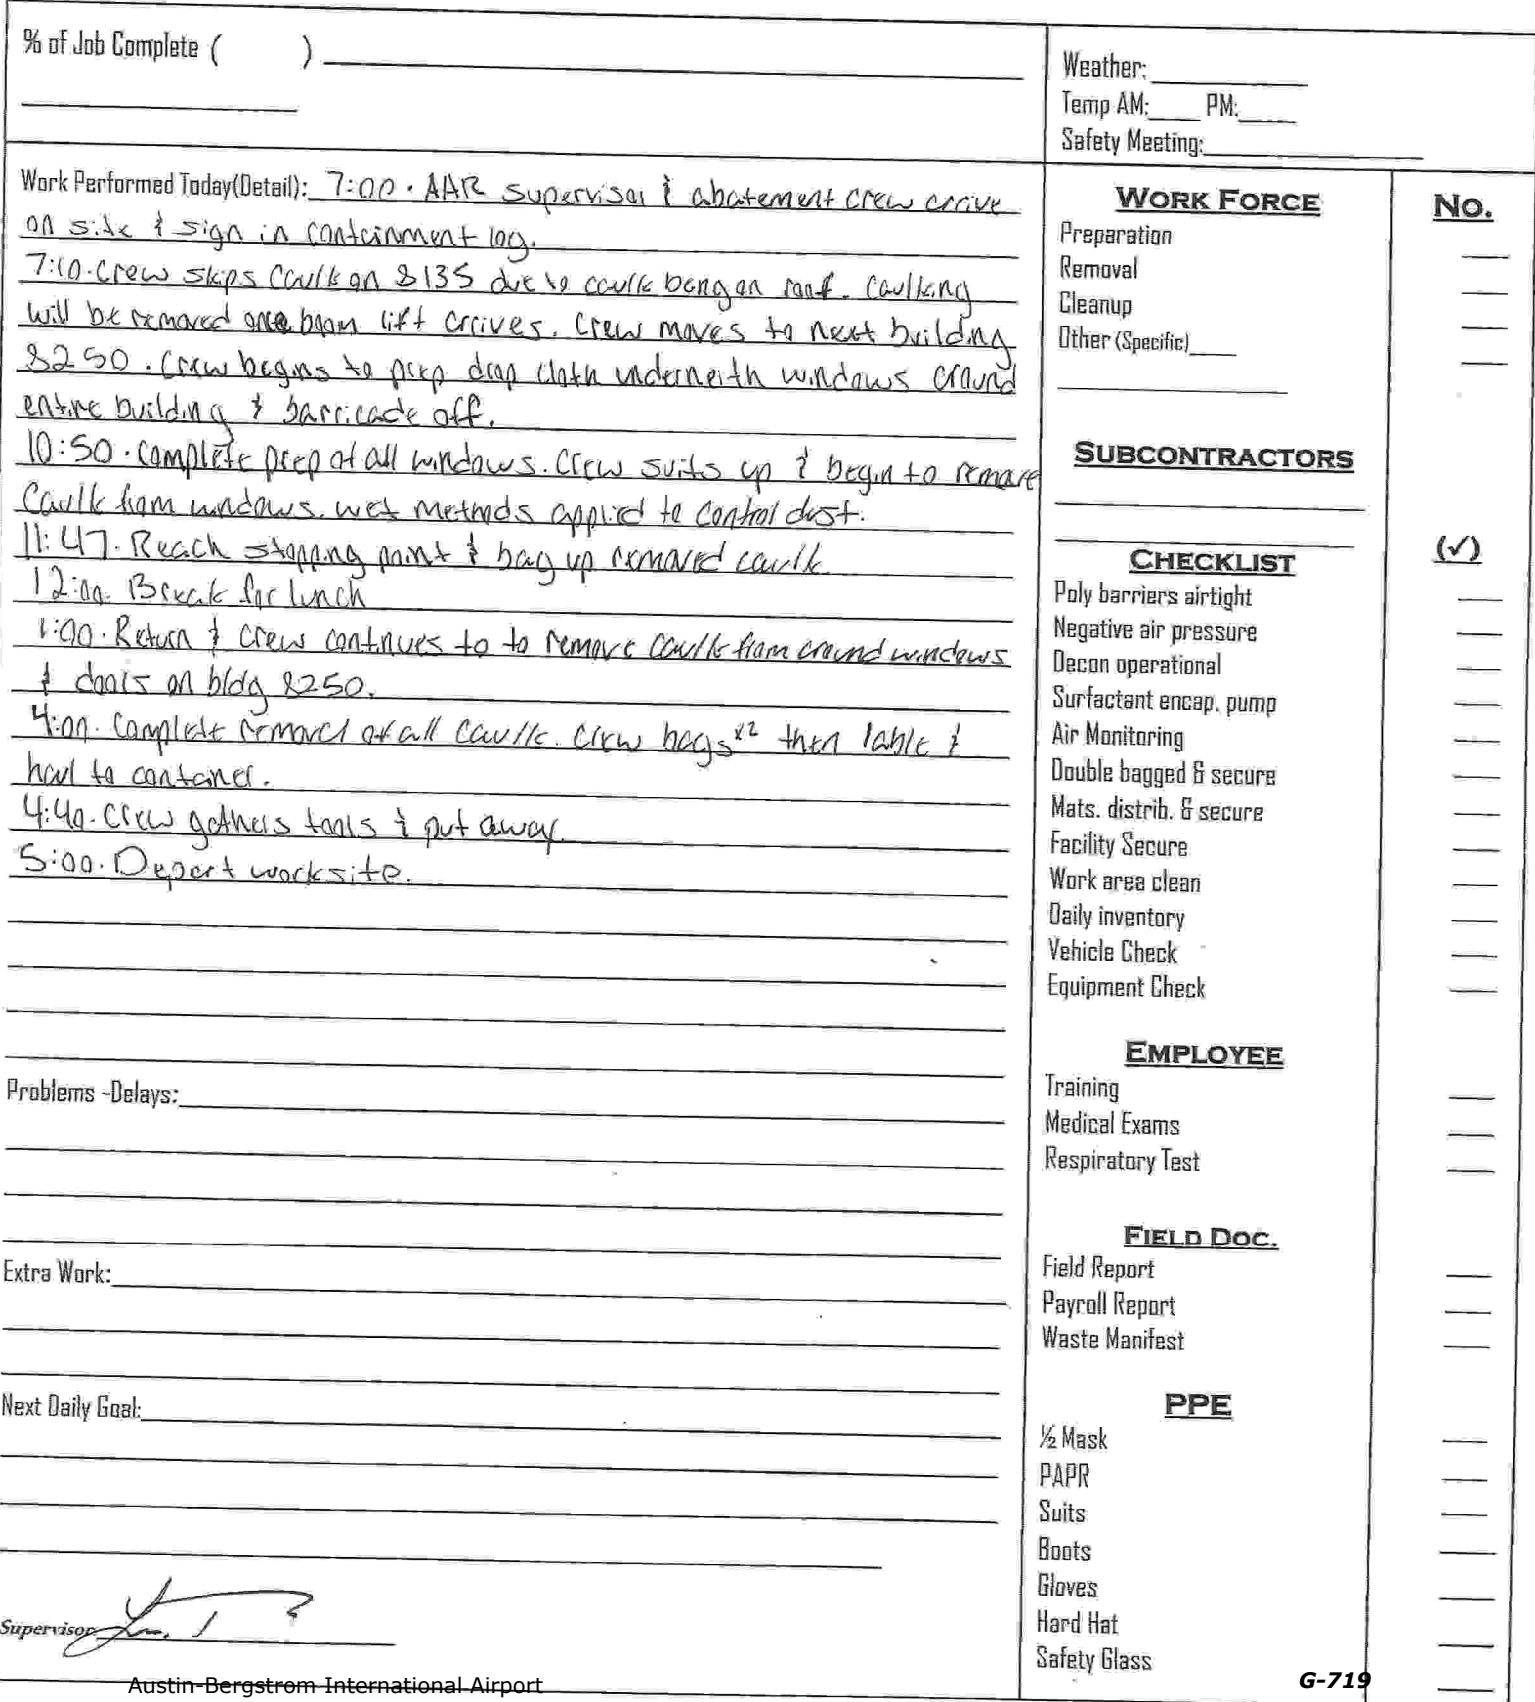 % of Job Complete ( )
Weather:
Temp AM: PM:
Safety Meeting:
Work Performed Today(Detail): 7:00. AAR supervisor & abatement crew arrive
on site & sign in containment log.
7:10. Crew skips caulk on 8135 due to caulk being on roof. Caulking
will be removed once boom lift arrives. Crew moves to next building
8250. Crew begins to prep drop cloth underneith windows around
entire building & barricade off.
10:50. Complete prep of all windows. Crew suits up & begin to remove
caulk from windows. wet methods applied to control dust.
11:47. Reach stopping point & bag up removed caulk.
12:00. Break for lunch
1:00. Return & crew continues to to remove caulk from around windows
& doors on bldg 8250.
4:00. Complete removal of all caulk. Crew bags x2 then lable &
haul to container.
4:40. Crew gathers tools & put away.
5:00. Depart worksite.
Problems -Delays:
Extra Work:
Next Daily Goal:
Supervisor
WORK FORCE No.
Preparation
Removal
Cleanup
Other (Specific)
SUBCONTRACTORS
CHECKLIST (✓)
Poly barriers airtight
Negative air pressure
Decon operational
Surfactant encap. pump
Air Monitoring
Double bagged & secure
Mats. distrib. & secure
Facility Secure
Work area clean
Daily inventory
Vehicle Check
Equipment Check
EMPLOYEE
Training
Medical Exams
Respiratory Test
FIELD DOC.
Field Report
Payroll Report
Waste Manifest
PPE
½ Mask
PAPR
Suits
Boots
Gloves
Hard Hat
Safety Glass
Austin-Bergstrom International Airport
G-719